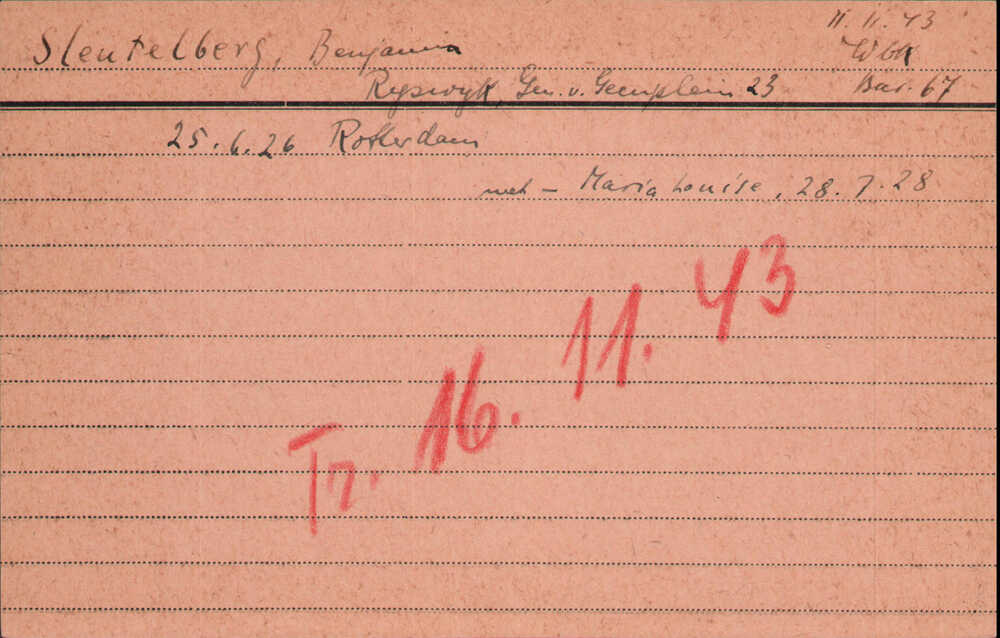 Sleutelberg, Benjamin
11.11.43
Wbk
Ryswyk, Gen. v. Geenplein 23
Bar. 67
25.6.26 Rotterdam
met - Maria Louise, 28.7.28
Tr. 16.11.43